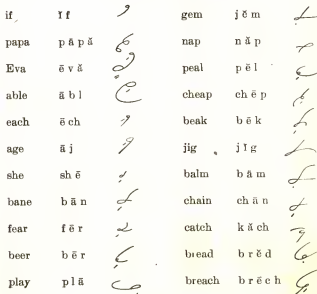 if ĭ f gem j ĕ m
papa p ä p ă nap n ă p
Eva ē v ă peal p ē l
able ā b l cheap ch ē p
each ē ch beak b ē k
age ā j jig j ĭ g
she sh ē balm b ä m
bane b ā n chain ch ā n
fear f ē r catch k ă ch
beer b ē r bread b r ĕ d
play p l ā breach b r ē c h